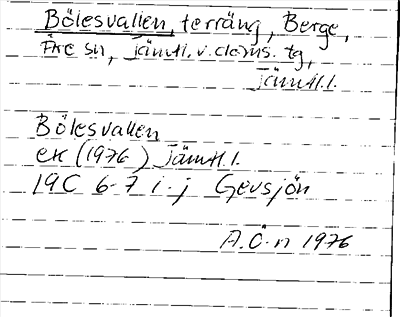 Bölesvallen, terräng, Berge,
Åre sn, Jämtl. v. doms. tg,
Jämtl. l.
Bölesvallen
ek (1976) Jämtl. l.
19C 6-7 i-j Gevsjön
A.Ö-n 1976